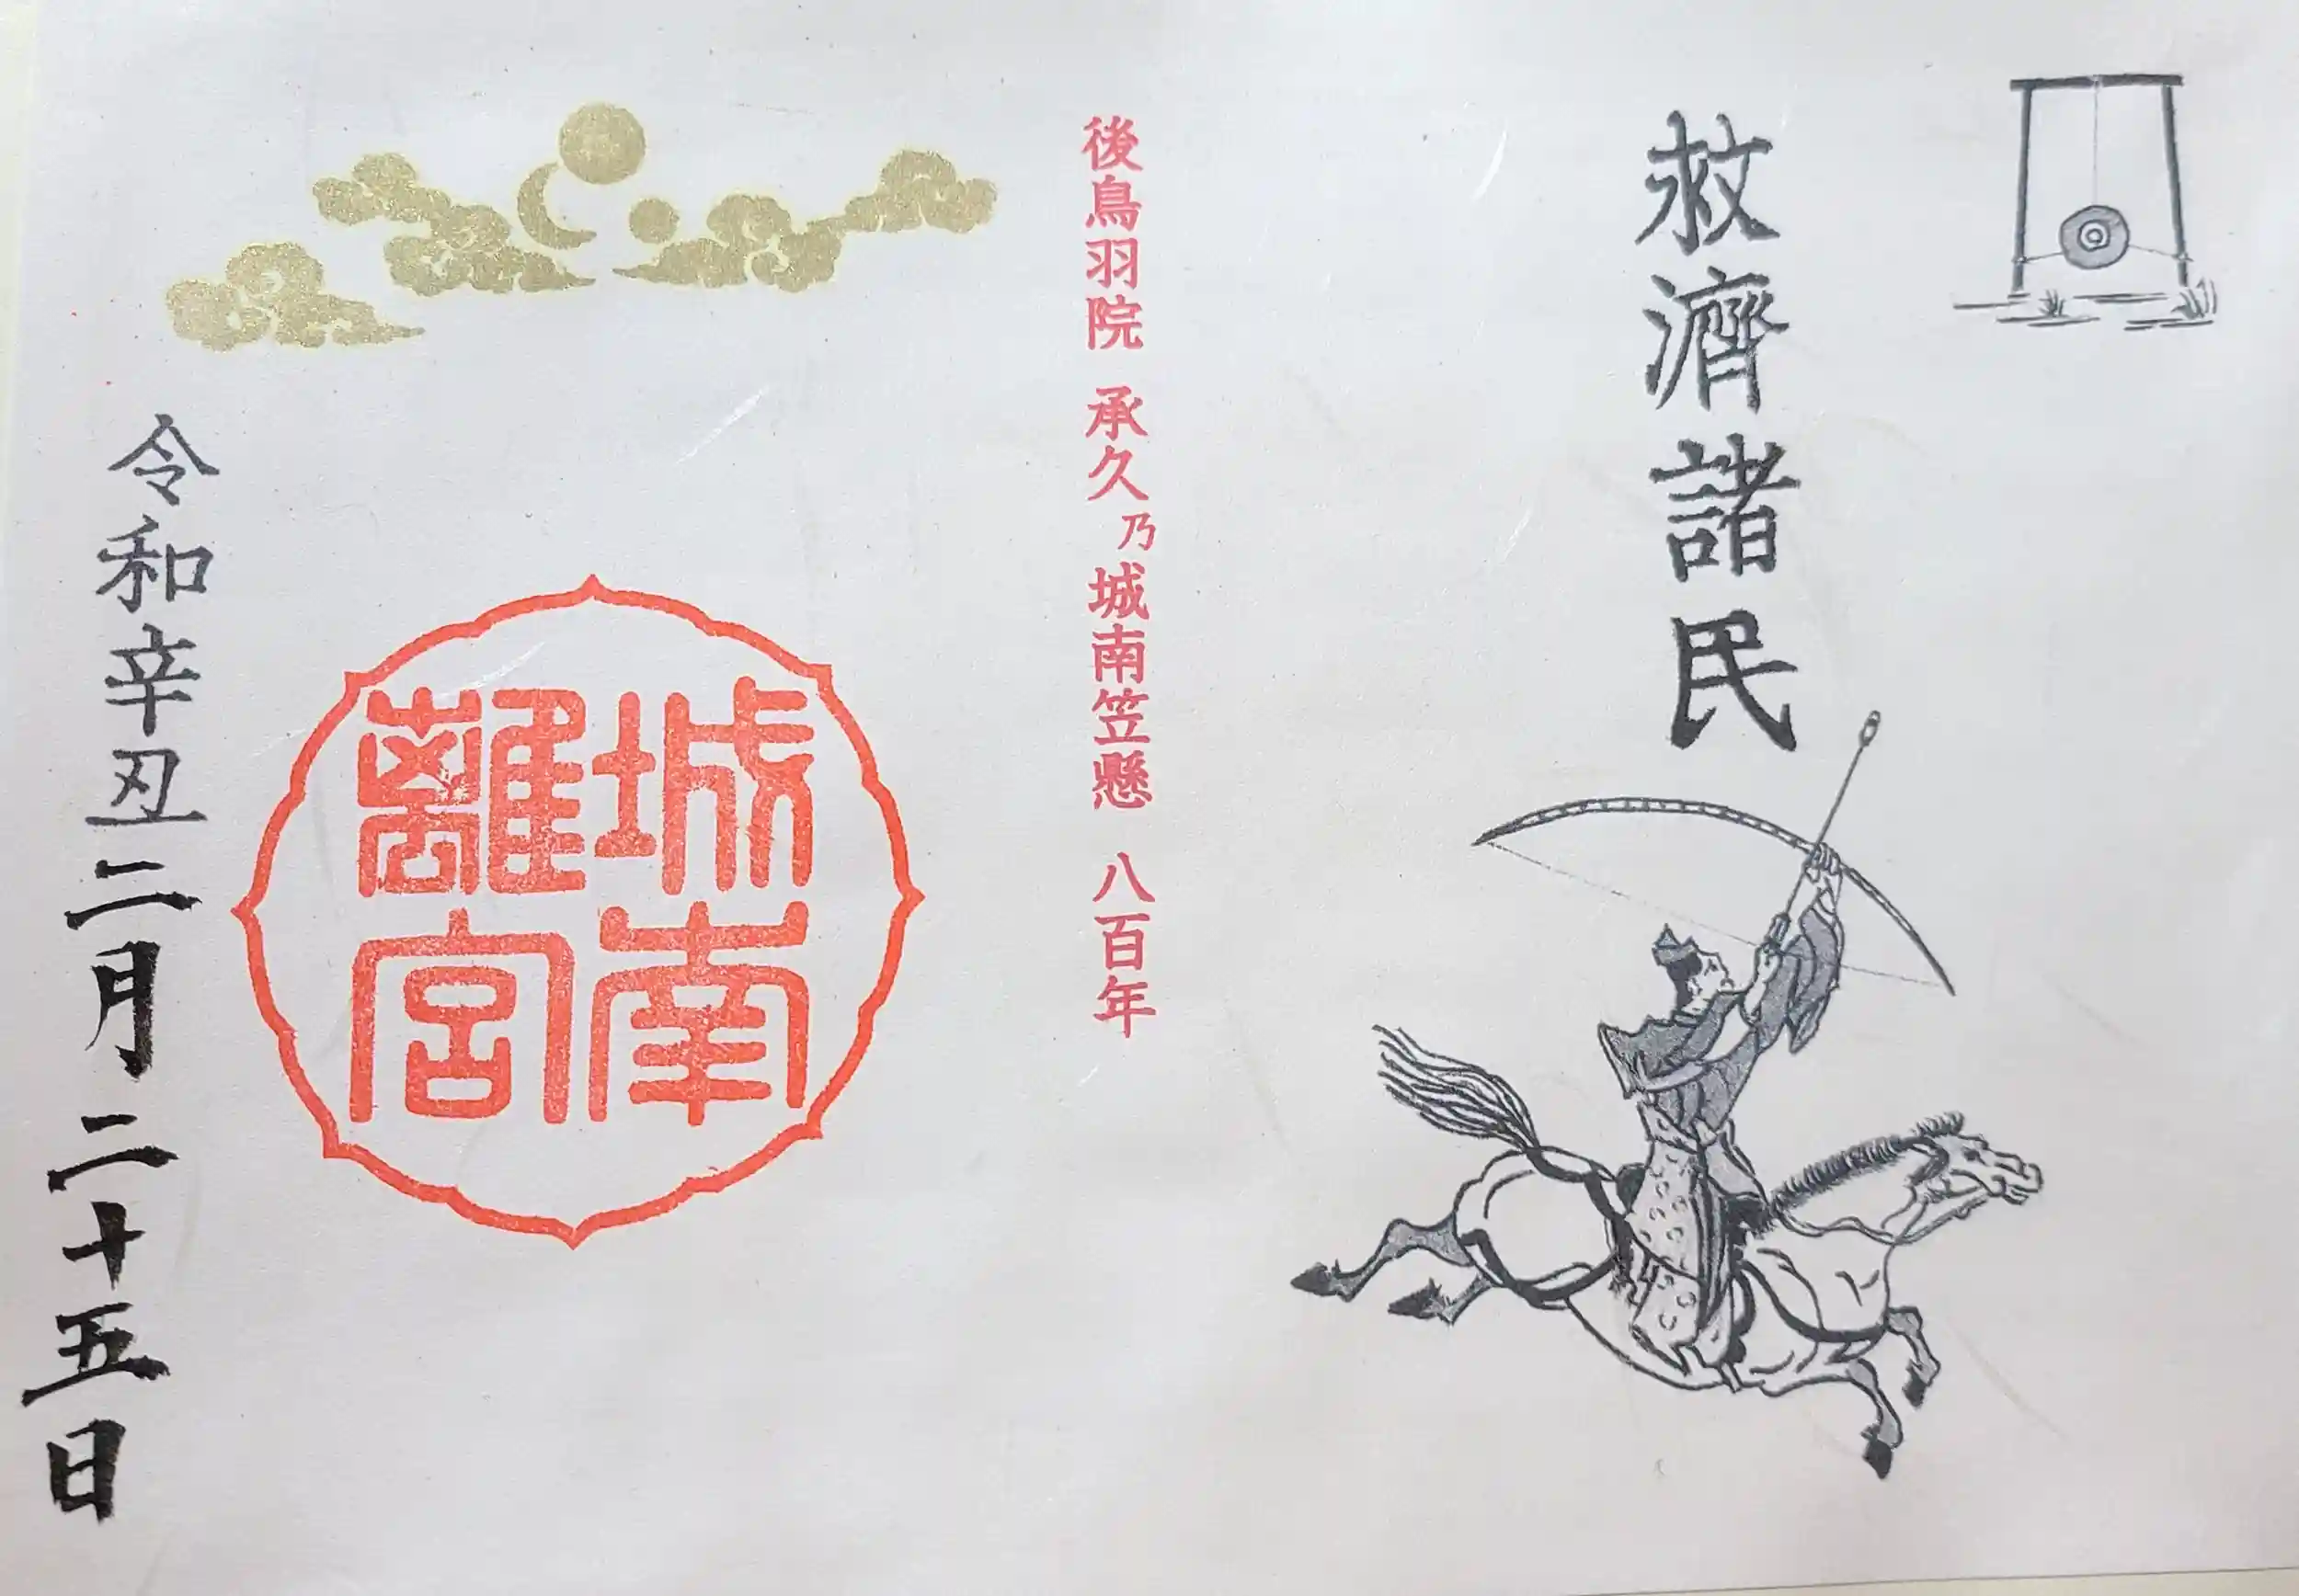 救濟諸民
後鳥羽院 承久乃城南笠懸 八百年
城南
離宮
令和辛丑二月二十五日